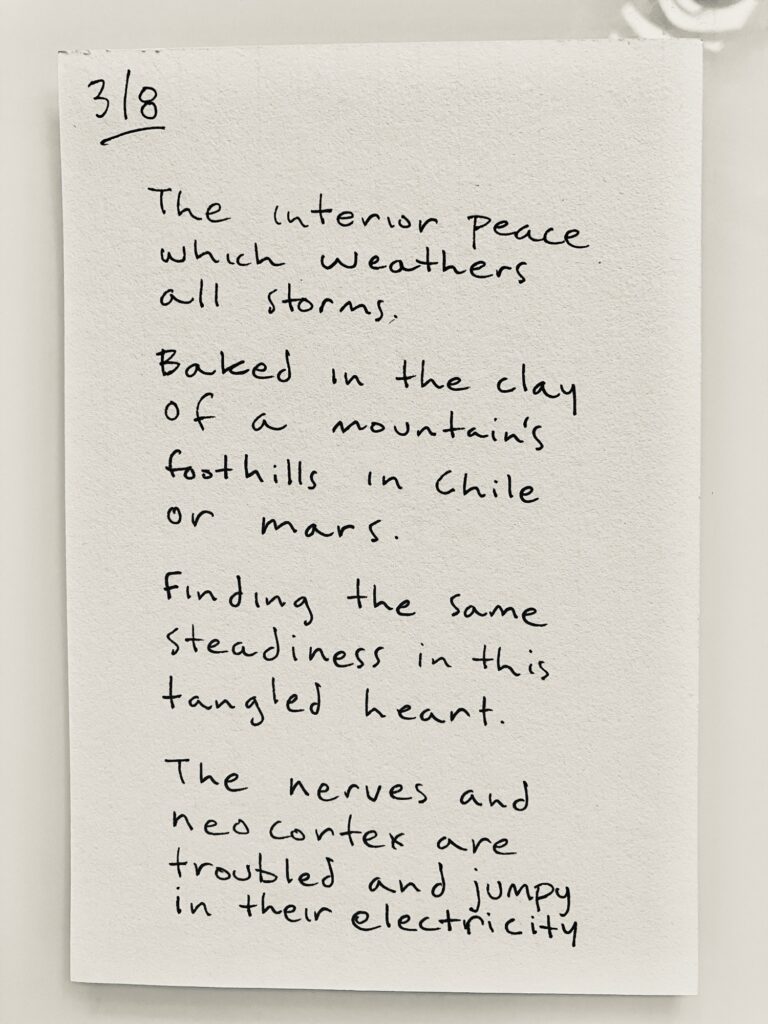 3/8
The interior peace
which weathers
all storms.
Baked in the clay
of a mountain's
foothills in Chile
or mars.
Finding the same
steadiness in this
tangled heart.
The nerves and
neocortex are
troubled and jumpy
in their electricity